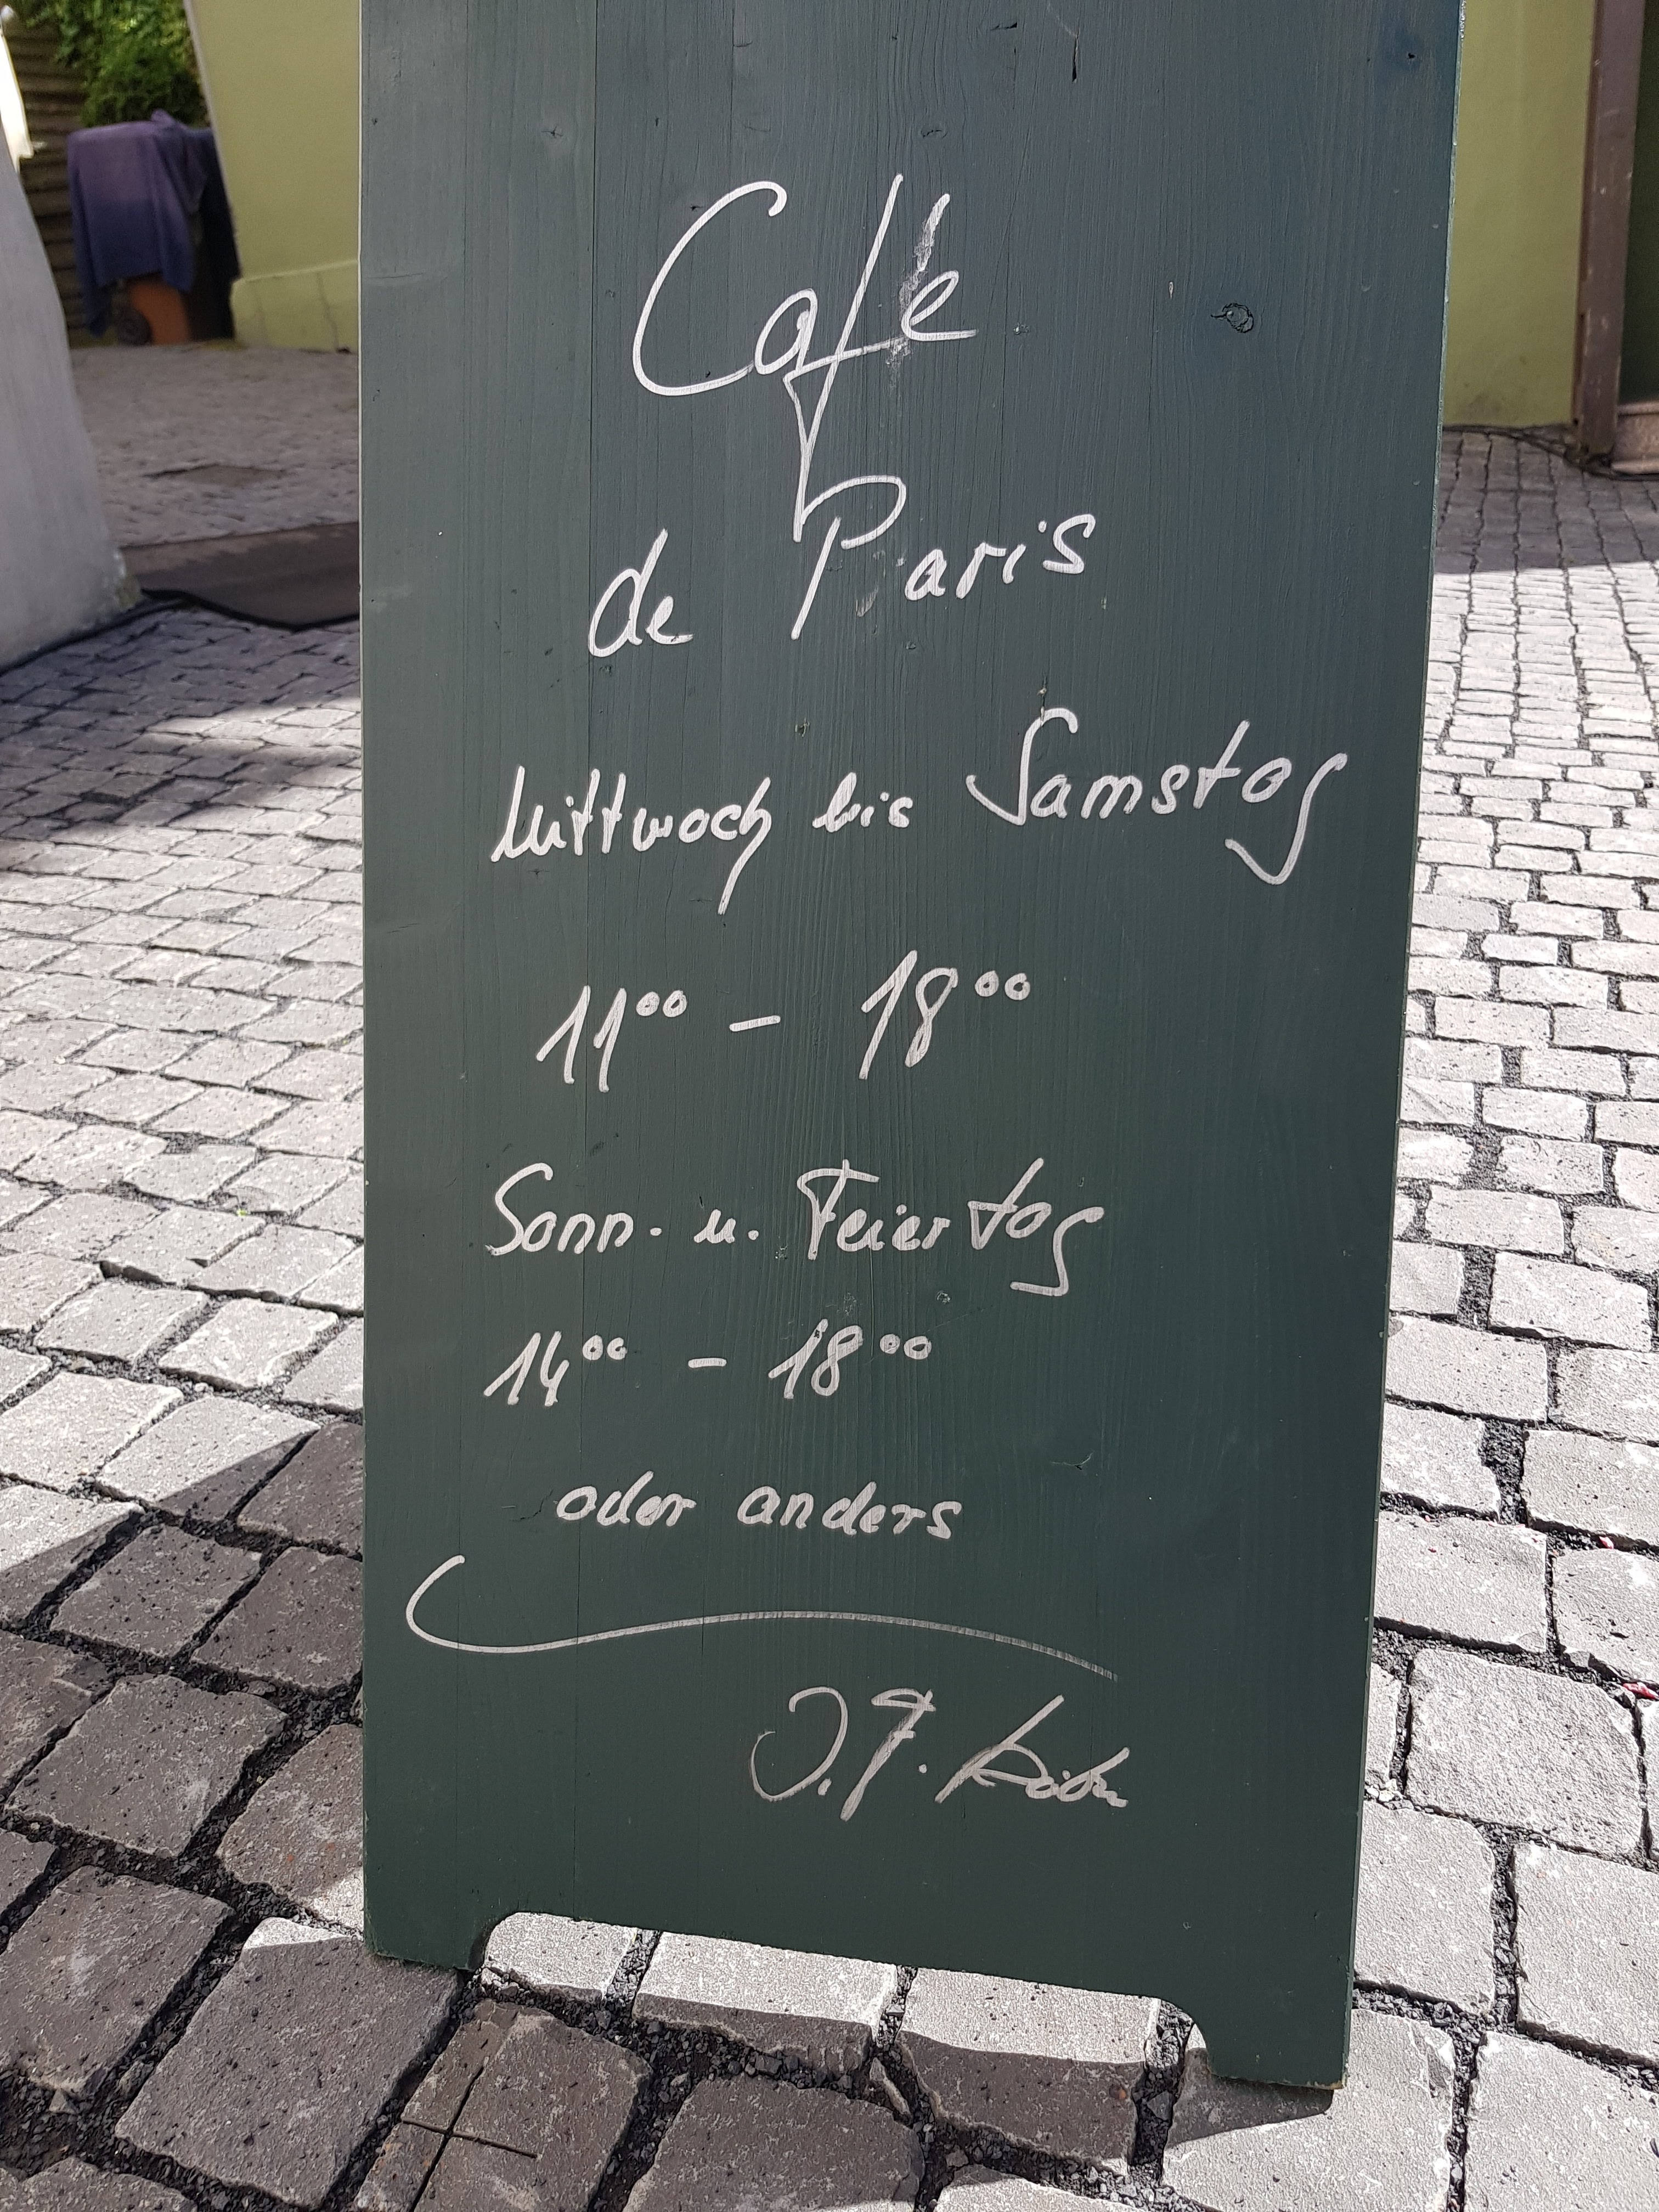 Café
de Paris
Mittwoch bis Samstag
11⁰⁰ - 18⁰⁰
Sonn- u. Feiertag
14⁰⁰ - 18⁰⁰
oder anders
J.F.